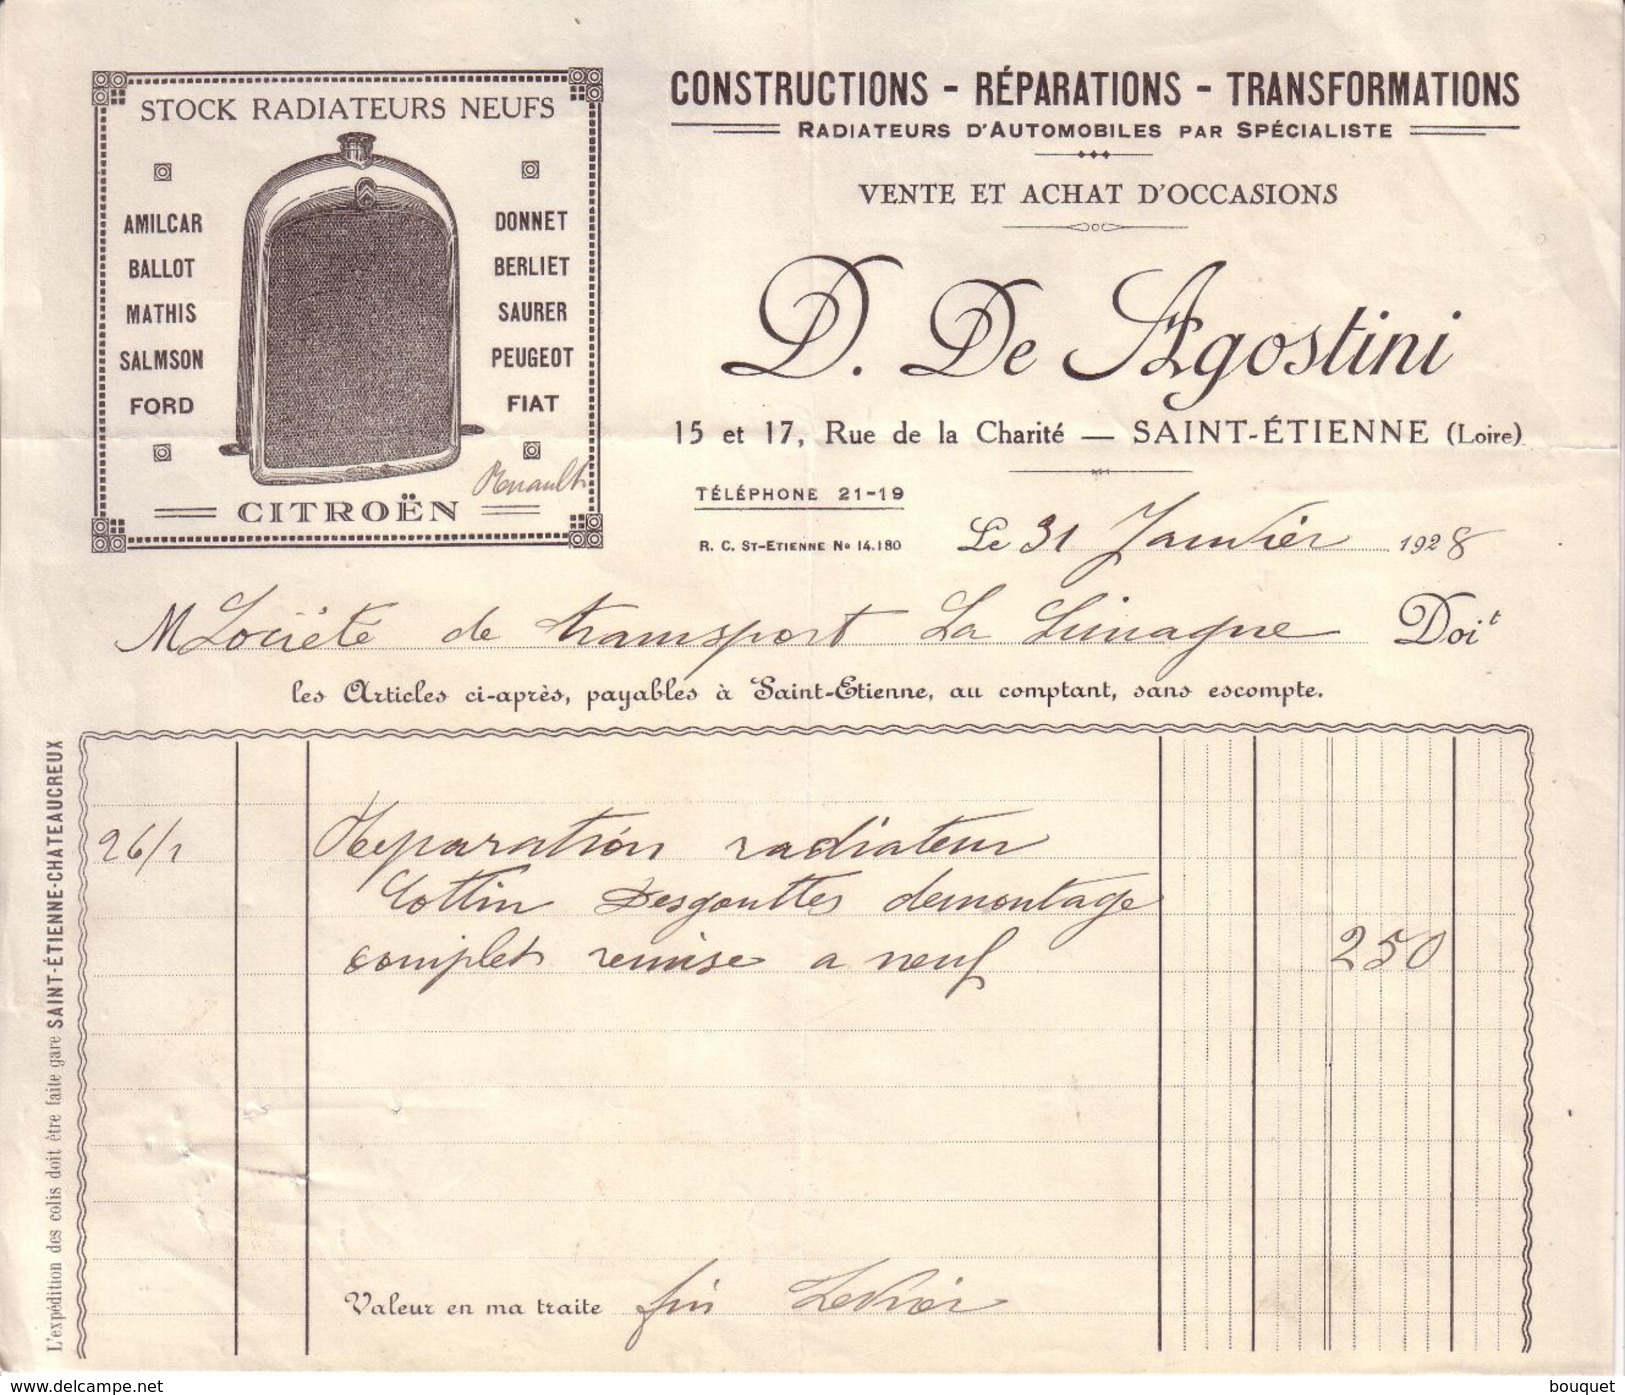 STOCK RADIATEURS NEUFS
AMILCAR
BALLOT
MATHIS
SALMSON
FORD
DONNET
BERLIET
SAURER
PEUGEOT
FIAT
Renault
CITROËN
CONSTRUCTIONS - RÉPARATIONS - TRANSFORMATIONS
RADIATEURS D'AUTOMOBILES PAR SPÉCIALISTE
VENTE ET ACHAT D'OCCASIONS
D. De Agostini
15 et 17, Rue de la Charité — SAINT-ÉTIENNE (Loire)
TÉLÉPHONE 21-19
R. C. ST-ETIENNE No 14.180
Le 31 Janvier 1928
M Société de transport La Limagne Doit
les Articles ci-après, payables à Saint-Etienne, au comptant, sans escompte.
26/1 Reparation radiateur
Cottin Desgouttes demontage
complet remise a neuf 250
Valeur en ma traite fin Fevrier
L'expédition des colis doit être faite gare SAINT-ÉTIENNE-CHATEAUCREUX
www.delcampe.net
bouquet